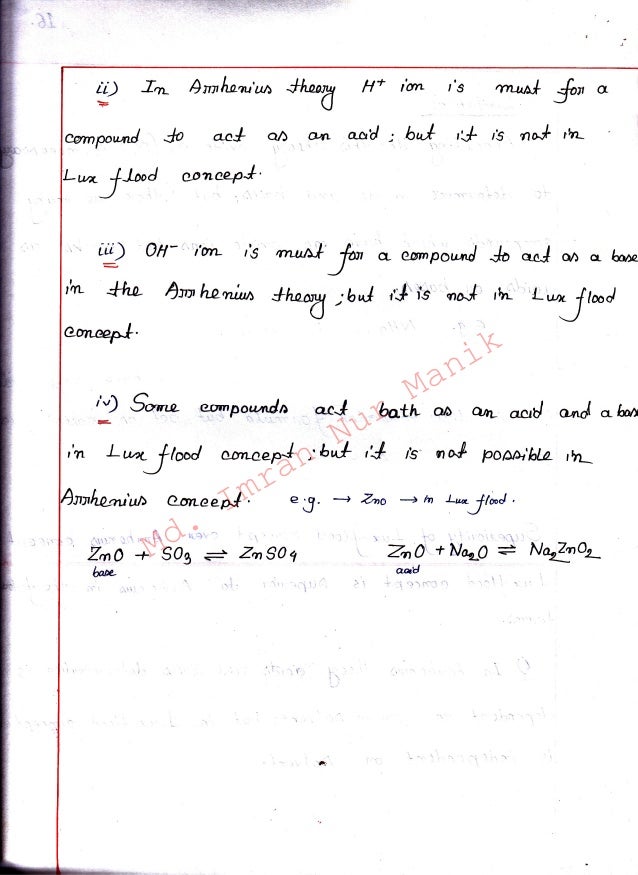 ii) In Arrhenius theory H+ ion is must for a
compound to act as an acid ; but it is not in
Lux flood concept.
iii) OH- ion is must for a compound to act as a base
in the Arrhenius theory ; but it is not in Lux flood
concept.
iv) Some compounds act bath as an acid and a base
in Lux flood concept ; but it is not possible in
Arrhenius concept. e.g. → ZnO → in Lux flood.
ZnO + SO3 ⇌ ZnSO4 ZnO + Na2O ⇌ Na2ZnO2
base acid
Md. Imran Nur Manik
16.